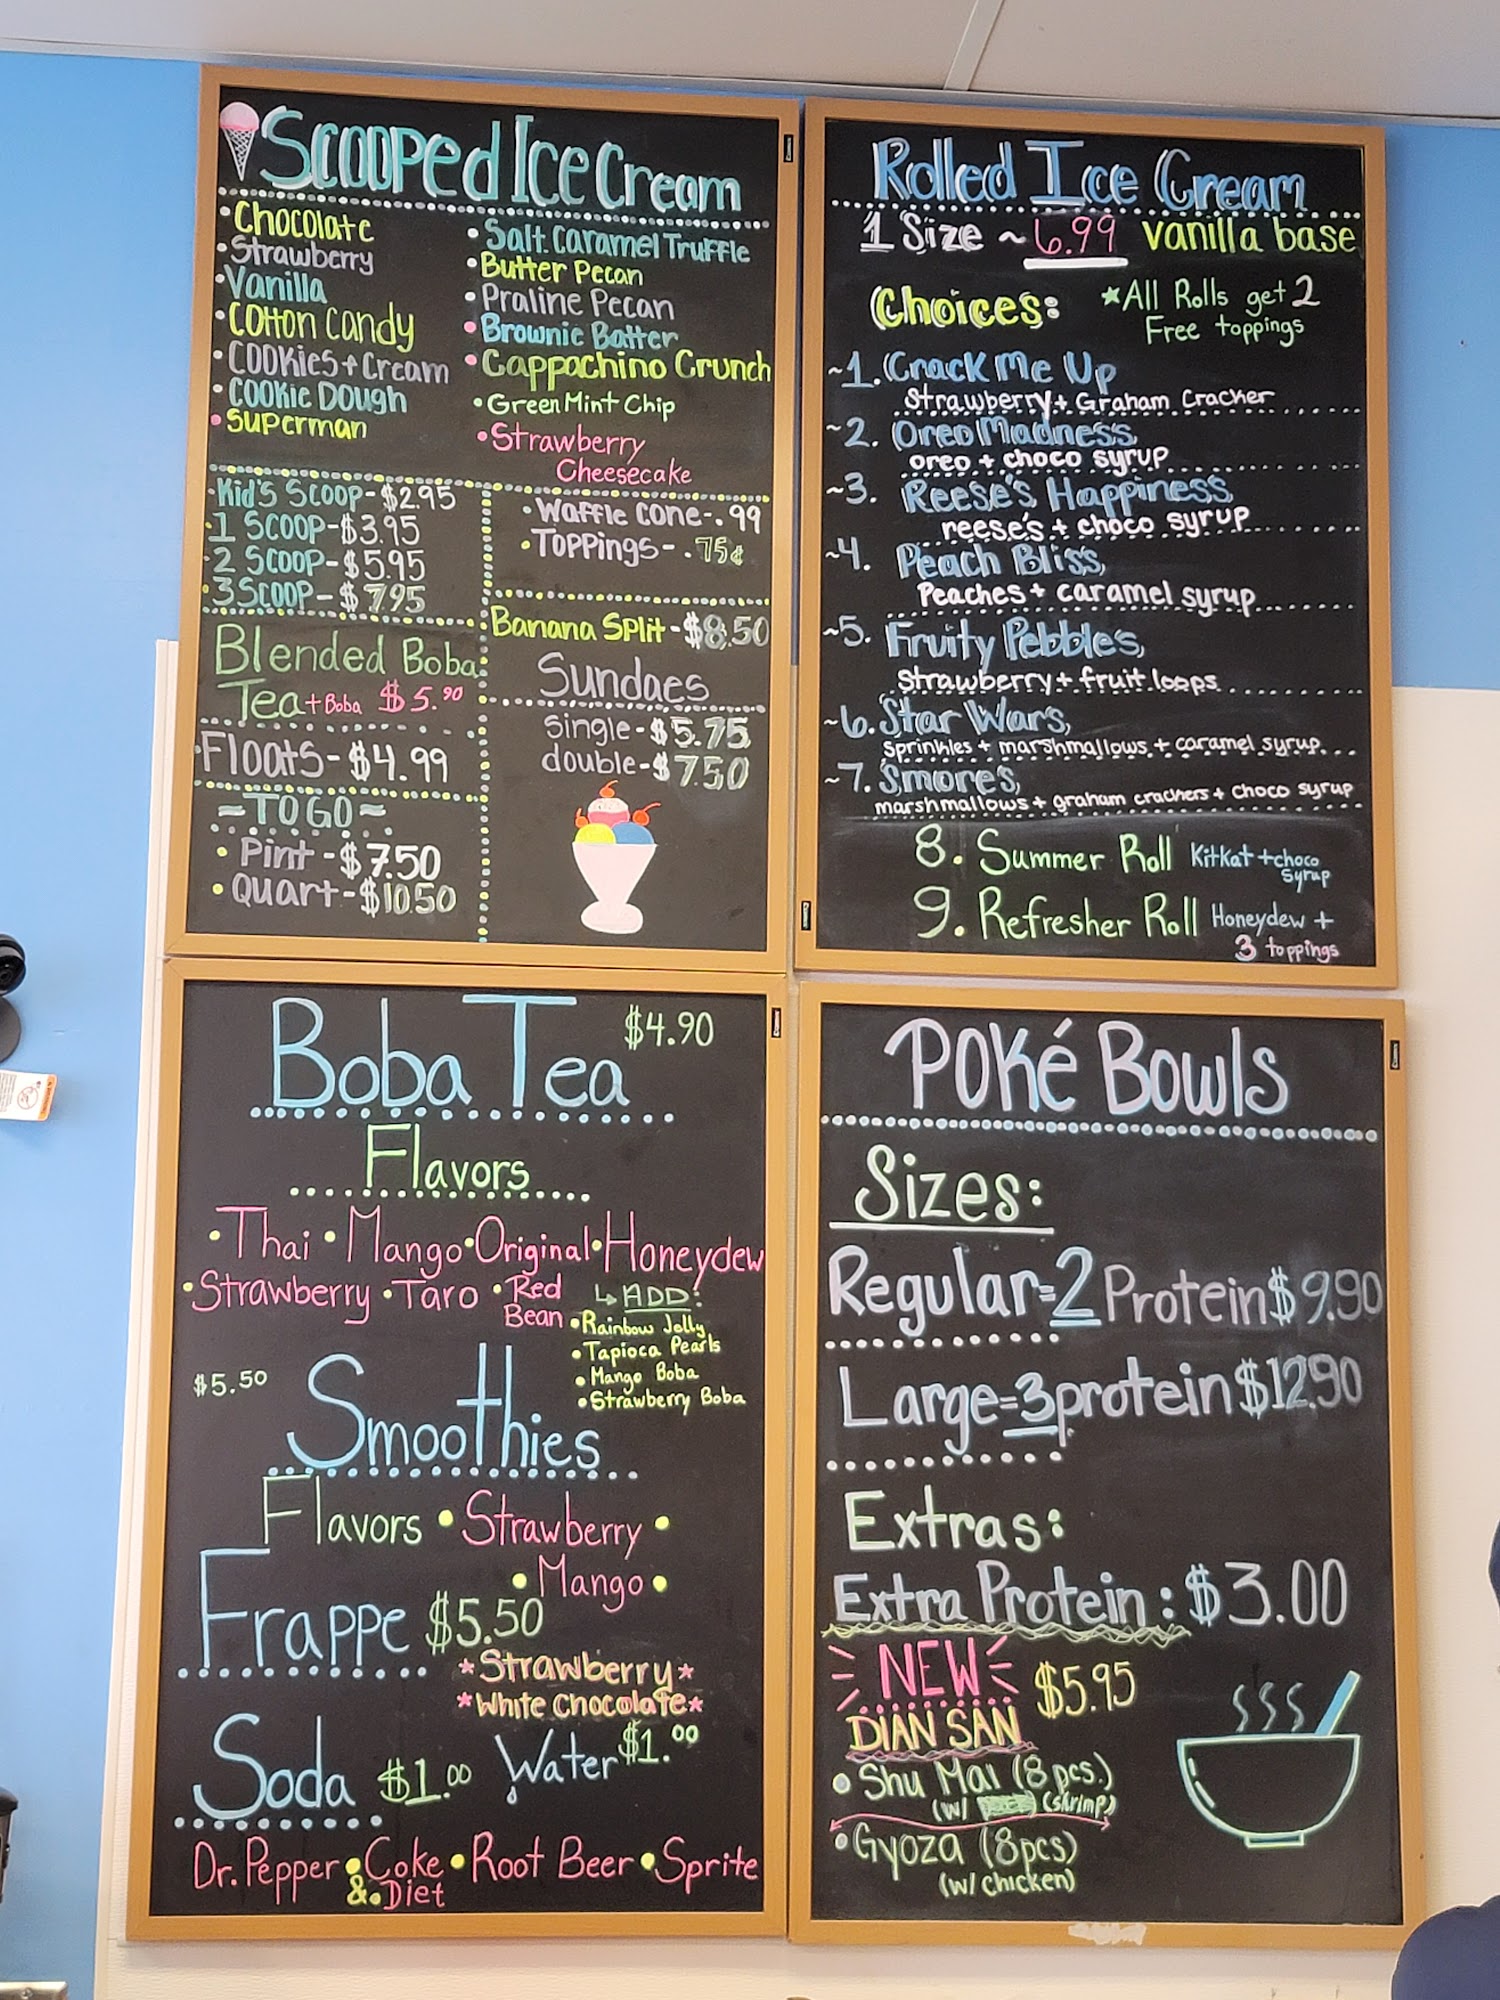 Scooped Ice Cream
• Chocolate
• Strawberry
• Vanilla
• Cotton Candy
• Cookies + Cream
• Cookie Dough
• Superman
• Salt Caramel Truffle
• Butter Pecan
• Praline Pecan
• Brownie Batter
• Cappachino Crunch
• Green Mint Chip
• Strawberry
Cheesecake
• Kid's Scoop - $2.95
• 1 Scoop - $3.95
• 2 Scoop - $5.95
• 3 Scoop - $7.95
• Waffle Cone - .99
• Toppings - .75¢
Blended Boba
Tea + Boba $5.90
Floats - $4.99
= TO GO =
• Pint - $7.50
• Quart - $10.50
Banana Split - $8.50
Sundaes
single - $5.75
double - $7.50
Rolled Ice Cream
1 Size ~ 6.99 vanilla base
Choices:
★ All Rolls get 2
Free toppings
~1. Crack Me Up
Strawberry + Graham Cracker
~2. Oreo Madness
oreo + choco syrup
~3. Reese's Happiness
reese's + choco syrup
~4. Peach Bliss
Peaches + caramel syrup
~5. Fruity Pebbles
Strawberry + fruit loops
~6. Star Wars
Sprinkles + marshmallows + caramel syrup
~7. Smores
marshmallows + graham crackers + choco syrup
8. Summer Roll Kitkat + choco
syrup
9. Refresher Roll Honeydew +
3 toppings
Boba Tea $4.90
Flavors
• Thai • Mango • Original • Honeydew
• Strawberry • Taro • Red
Bean
↳ ADD:
• Rainbow Jelly
• Tapioca Pearls
• Mango Boba
• Strawberry Boba
$5.50
Smoothies
Flavors • Strawberry •
• Mango •
Frappe $5.50
*Strawberry*
*White Chocolate*
Soda $1.00 Water $1.00
Dr. Pepper • Coke • Root Beer • Sprite
& • Diet
Poké Bowls
Sizes:
Regular = 2 Protein $9.90
Large = 3 protein $12.90
Extras:
Extra Protein: $3.00
NEW
DIAN SAN $5.95
• Shu Mai (8 pcs.)
(w/ (shrimp)
• Gyoza (8pcs)
(w/ chicken)